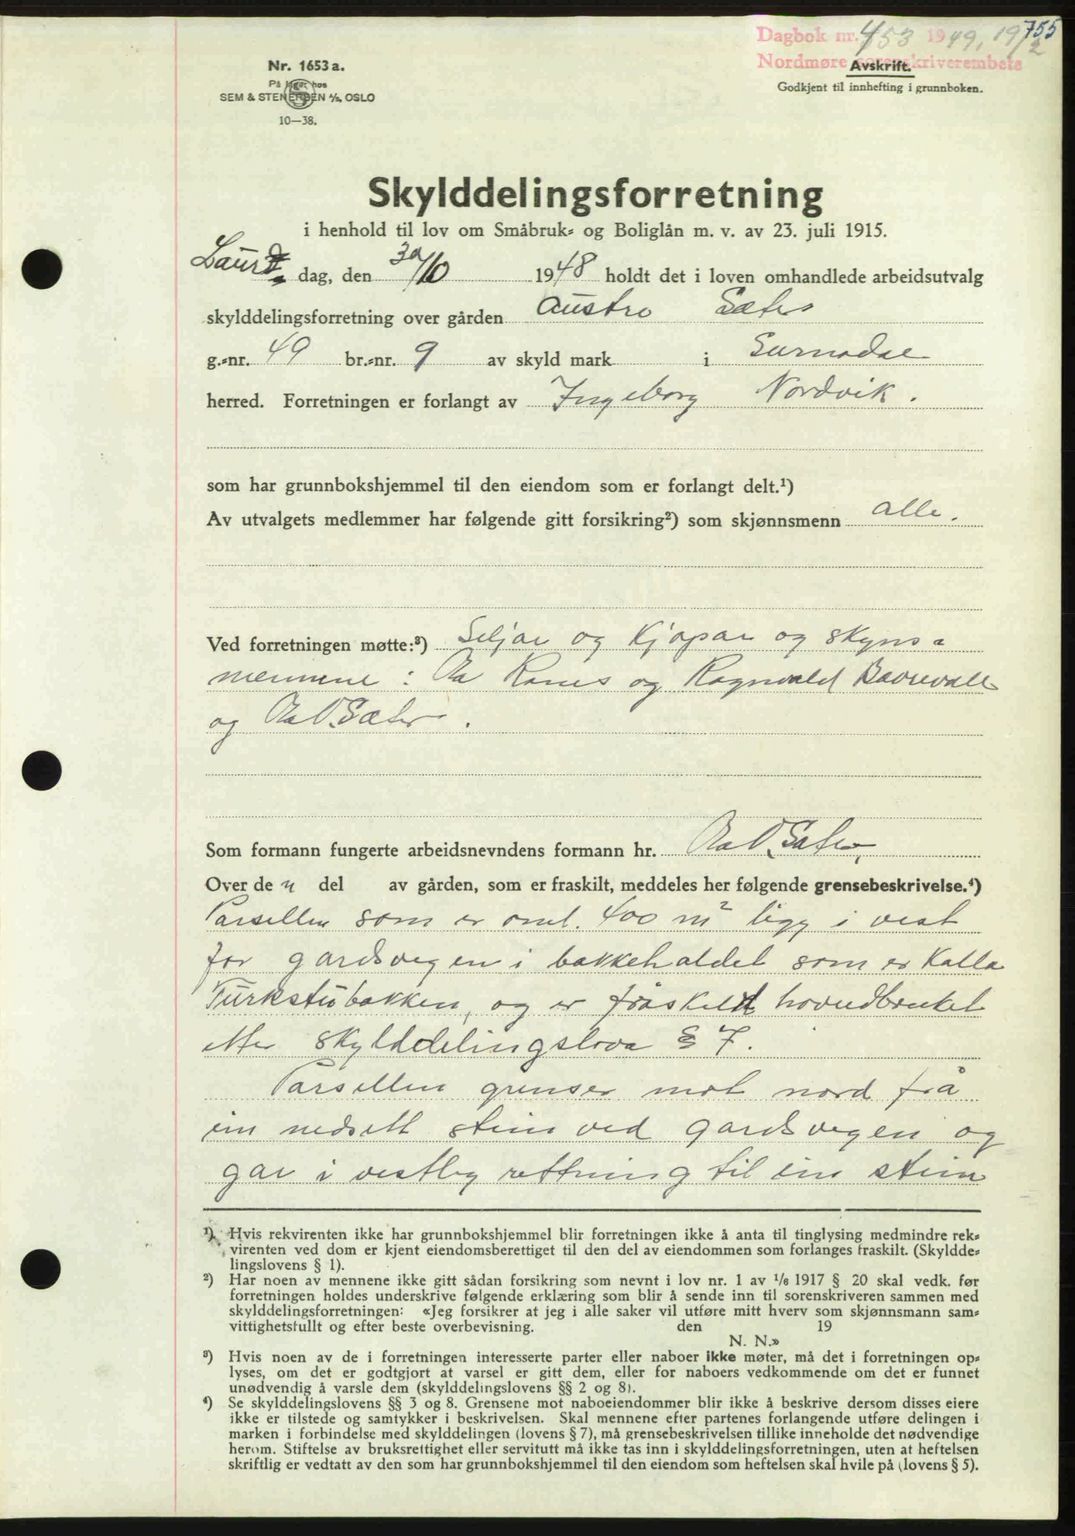 755
Dagbok nr. 453 1949, 19/2
Nordmøre sorenskriverembete
Avskrift.
Godkjent til innhefting i grunnboken.
Nr. 1653 a.
På lager hos
SEM & STENERSEN A/S, OSLO
10—38.
Skylddelingsforretning
i henhold til lov om Småbruk- og Boliglån m. v. av 23. juli 1915.
Laur dag, den 30/10 1948 holdt det i loven omhandlede arbeidsutvalg
skylddelingsforretning over gården Austre Sæter
g.-nr. 49 br.-nr. 9 av skyld mark i Surnadal
herred. Forretningen er forlangt av Ingeborg Nordvik.
som har grunnbokshjemmel til den eiendom som er forlangt delt.¹)
Av utvalgets medlemmer har følgende gitt forsikring²) som skjønnsmenn alle.
Ved forretningen møtte:³) Seljar og Kjøpar og skyns-
mennene: Ola Ranes og Ragnvald Bævervall
og Ola O. Sæter.
Som formann fungerte arbeidsnevndens formann hr. Ola O. Sæter.
Over de n del av gården, som er fraskilt, meddeles her følgende grensebeskrivelse.⁴)
Parsellen som er oml. 400 m² ligg i vest
for gardsvegen i bakkehaldet som er kalla
Turkstubakken, og er fråskild hovudbruket
etter skylddelingslova § 7.
Parsellen grenser mot nord frå
ein nedsett stein ved gardsvegen og
gar i vestleg rettning til ein stein
¹) Hvis rekvirenten ikke har grunnbokshjemmel blir forretningen ikke å anta til tinglysing medmindre rek-
virenten ved dom er kjent eiendomsberettiget til den del av eiendommen som forlanges fraskilt. (Skyldde-
lingslovens § 1).
²) Har noen av mennene ikke gitt sådan forsikring som nevnt i lov nr. 1 av 1/6 1917 § 20 skal vedk. før
forretningen holdes underskrive følgende erklæring som blir å sende inn til sorenskriveren sammen med
skylddelingsforretningen: «Jeg forsikrer at jeg i alle saker vil utføre mitt hverv som skjønnsmann sam-
vittighetsfullt og efter beste overbevisning. den 19
N. N.»
³) Hvis noen av de i forretningen interesserte parter eller naboer ikke møter, må det i forretningen op-
lyses, om det er godtgjort at varsel er gitt dem, eller for naboers vedkommende om det er funnet
unødvendig å varsle dem (skylddelingslovens §§ 2 og 8).
⁴) Se skylddelingslovens §§ 3 og 8. Grensene mot naboeiendommer blir ikke å beskrive dersom disses eiere
ikke er tilstede og samtykker i beskrivelsen. Skal mennene efter partenes forlangende utføre delingen i
marken i forbindelse med skylddelingen (lovens § 7), må grensebeskrivelsen tillike inneholde det nødvendige
herom. Stiftelse av bruksrettighet eller servitutt må ikke tas inn i skylddelingsforretningen, uten at heftelsen
skriftlig er vedtatt av den som har grunnbokshjemmel til den eiendom som heftelsen skal hvile på (lovens § 5).